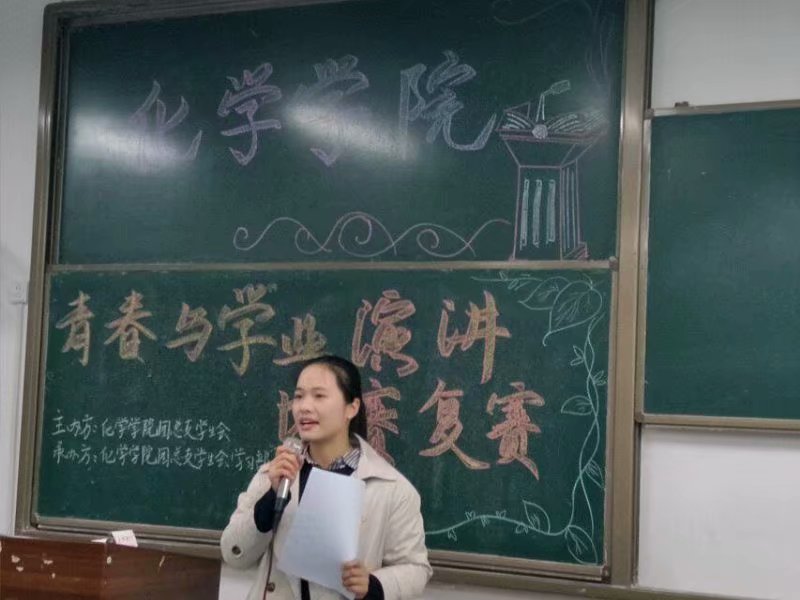 化学学院
青春与学业演讲
赛复赛
主办方：化学学院团总支学生会
承办方：化学学院团总支学生会学习部